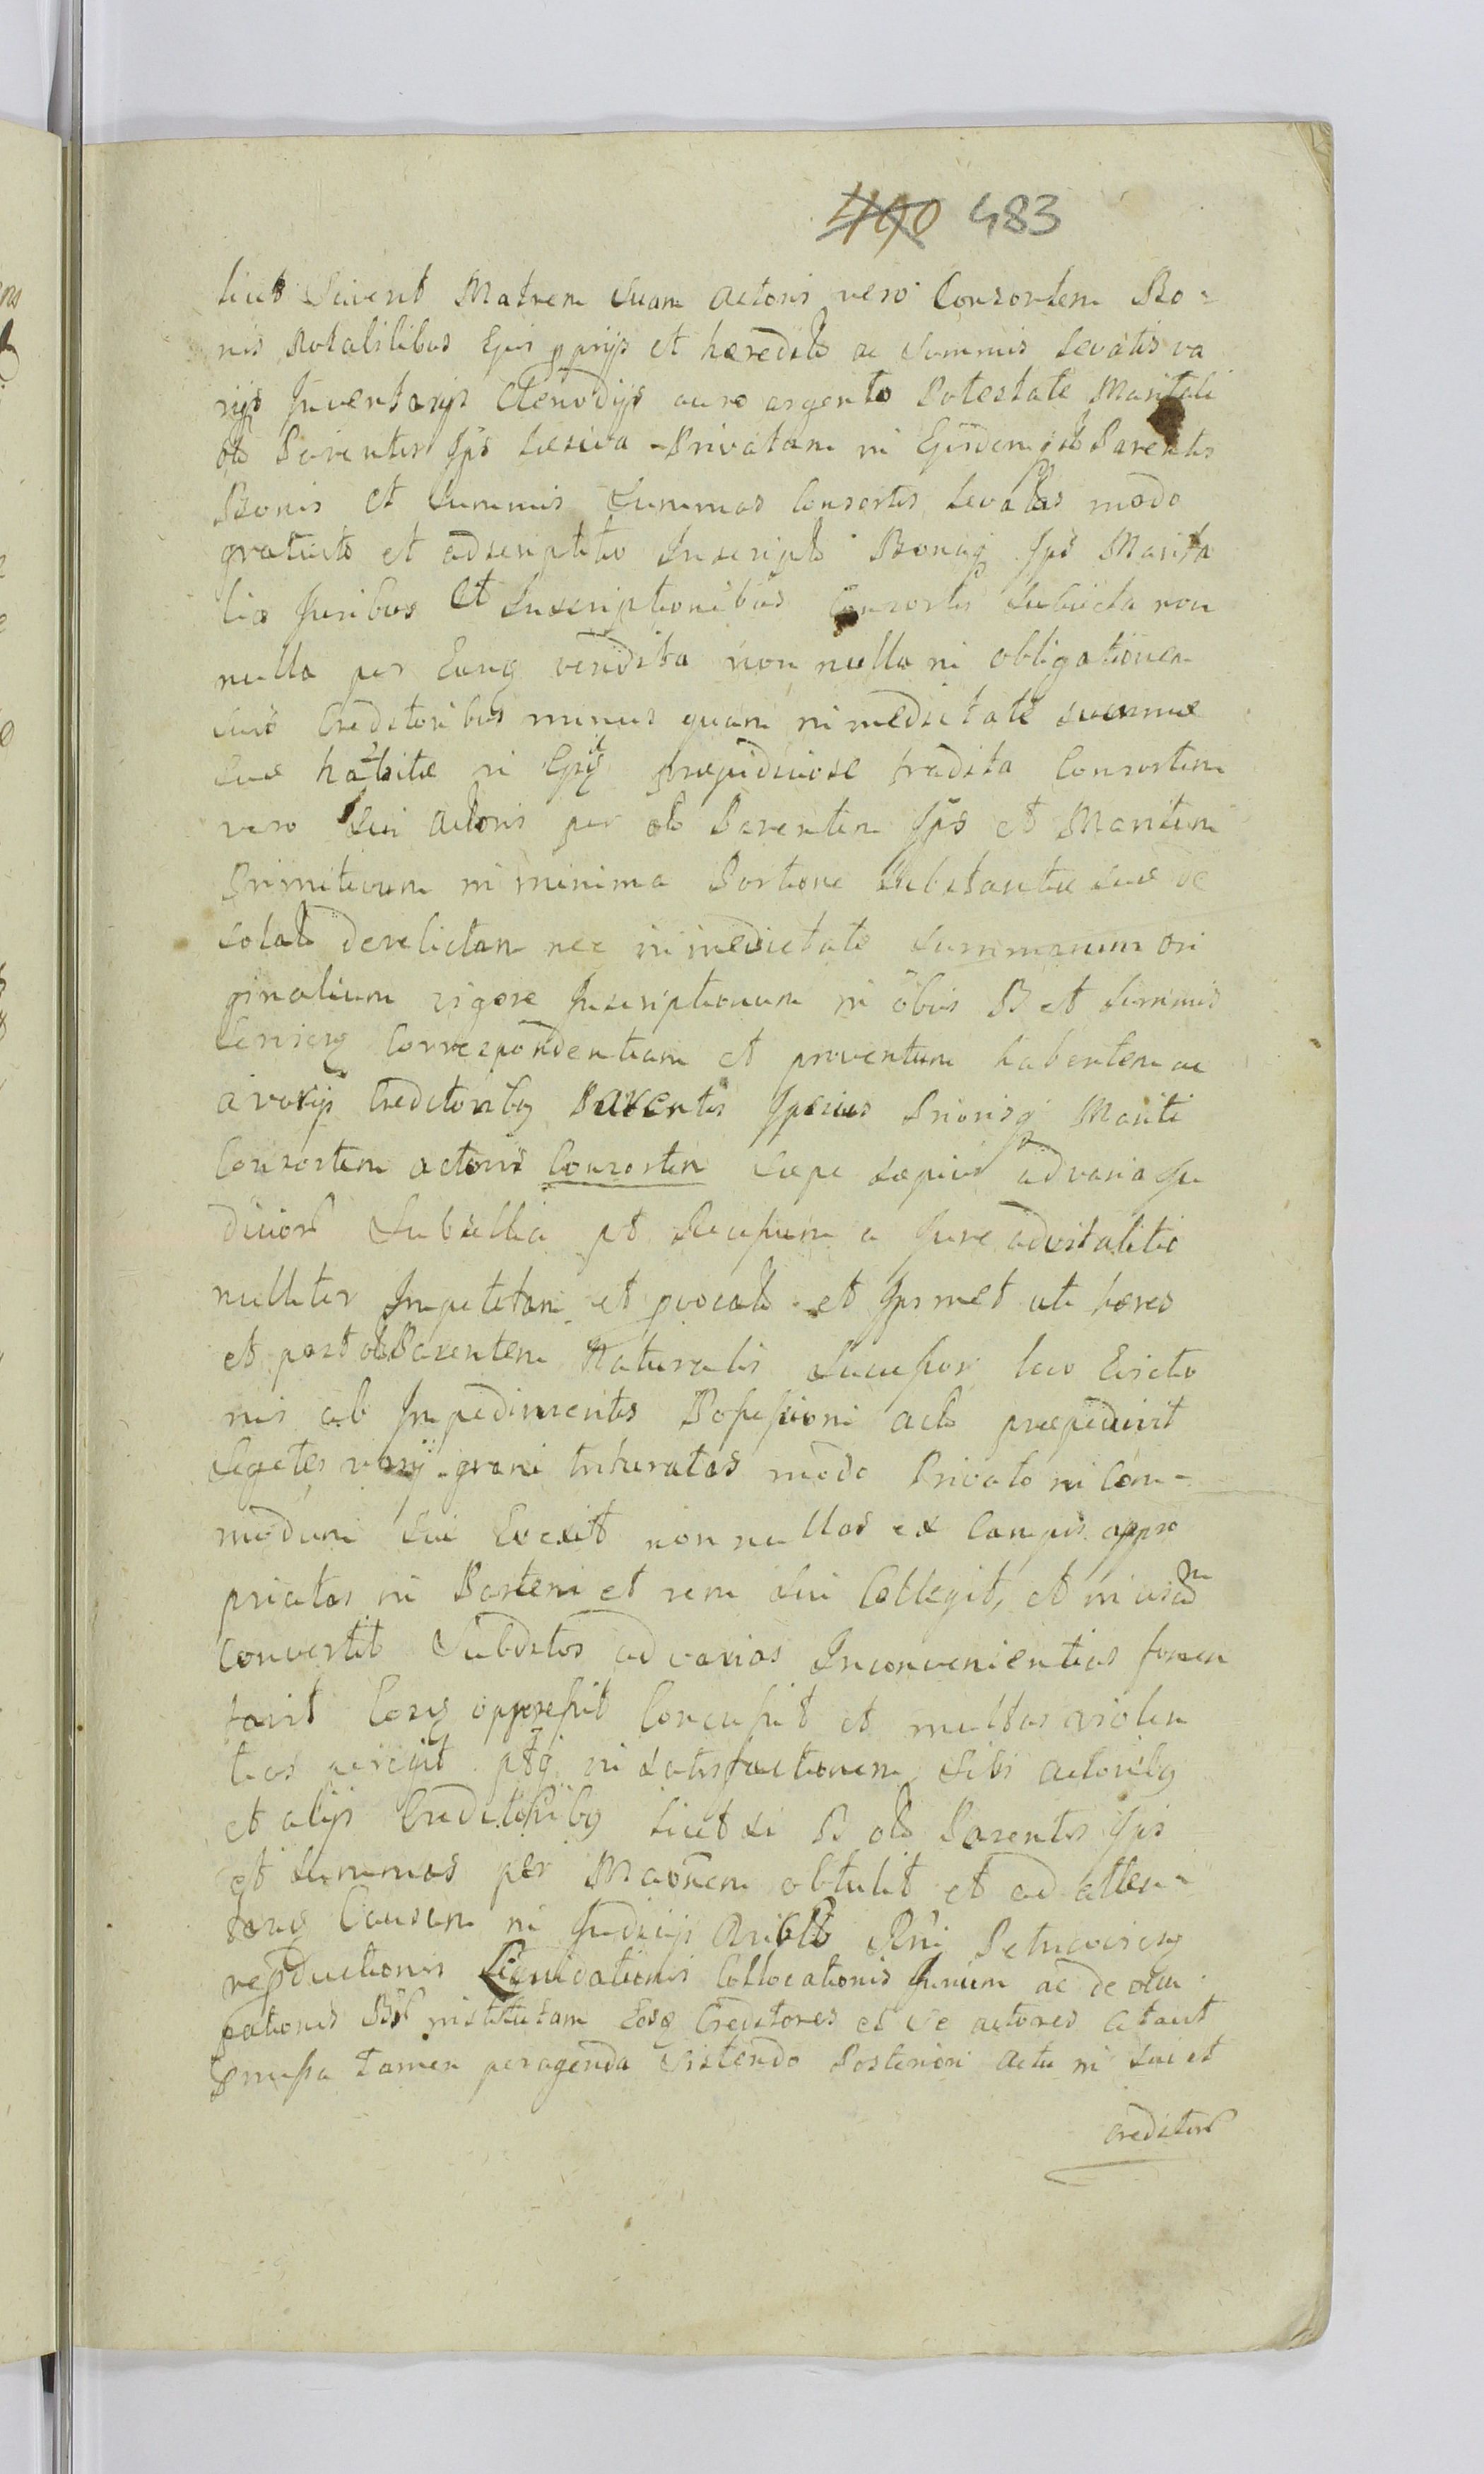 490 483
licet sciverit Matrem suam actoris vero Consortem Bo-
nis Dotalitibus Ejus pprijs et hæredit ac summis levatis va
rijs Inventarijs Clenodijs auro argento Potestate Maritali
ob Parentis Ips læsiva Privatam in Ejusdem ob Parentis
Bonis et summis summas Consortis levatas modo
gratuito et adscriptitio Inscript Bonaq Ips Marita
lia Juribus et Inscriptionibus Consortis subiecta non
nulla per Eung vendita non nulla in obligationem
suis Creditoribus minus quam in medietate summæ
suæ habitæ in præpidiciose tradita Consortem
vero sui actoris per ob Parentem Ips et Maritum
Primitivum in minima Portione substantiæ suæ de
solat derelictam nec in medietate summarum ori
ginalium vigore Inscriptionum in obus B et summis
Censiq Correspondentiam et proventum habentem ac
a varijs Creditoribq Parentis Ipsius Priorisq Mariti
Consortem actoris Consortem sæpe sæpius ad varia Ju
dicior Subsellia pt Recursum a Jure advitalitio
nulliter Impetitam et pvocat et Ipsmet uti hæres
et post ob Parentem Naturalis Successor loco Evictio
nis ab Impedimentis Possessioni act præpedivit
segetes varij grani trituratas modo Privato in Com-
modum sui Evexit non nullas ex Campis appro
priatas in Partem et rem sui Collegit, et in usum
convertit Subditos ad varias Inconvenientias fomen
tavit Eosq oppressit Concussit et multas violen
tias peregit ptq in satisfactionem sibi actoribq
et alijs Creditoribq licet si B ob Parentis Ips
et summas per obtulit et ad atten
Causam in Judicijs Petricoviensq
repductionis Liquidationis Collocationis Jurium ac de occu
pationis institutam Eosq Creditores et se actores citavit
Pmissa tamen peragenda sistendo Posteriori actu in sui et
creditor